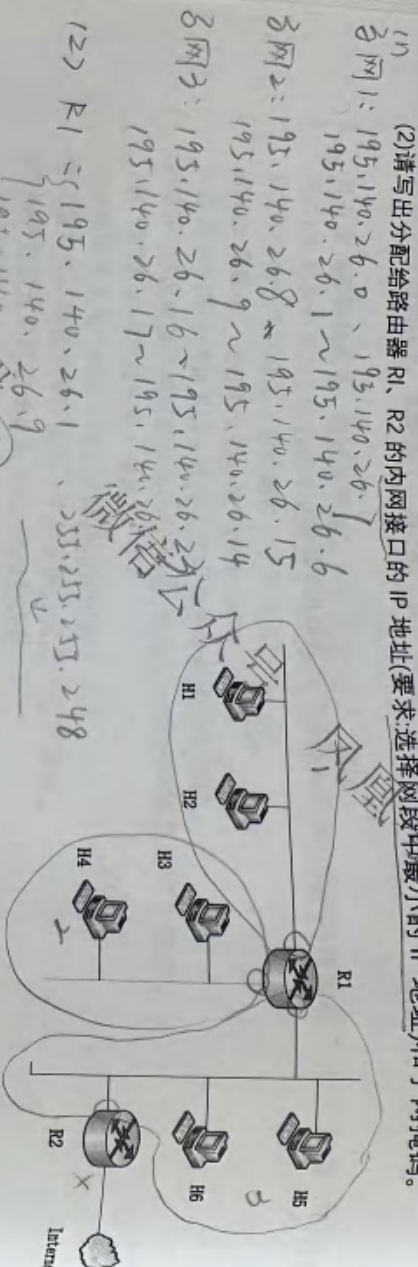 (2)请写出分配给路由器 R1、R2 的内网接口的 IP 地址(要求:选择网段中最小的 IP 地址)和子网掩码。
(1)
子网1: 195.140.26.0、195.140.26.7
195.140.26.1~195.140.26.6
子网2: 195.140.26.8~195.140.26.15
195.140.26.9~195.140.26.14
子网3: 195.140.26.16~195.140.26.23
195.140.26.17~195.140.26.
(2) R1: 195.140.26.1、255.255.255.248
195.140.26.9
微信公众号
凤凰
H1
H2
R1
H3
H4
2
H5
H6
3
R2